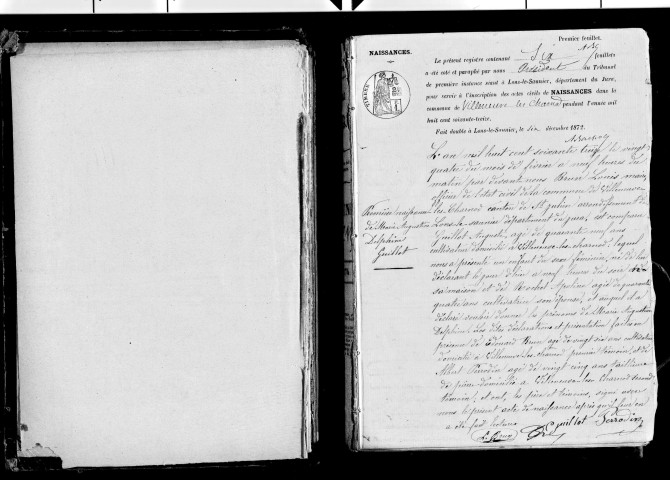 Premier feuillet.
NAISSANCES.
Le présent registre contenant Six feuillets
a été coté et paraphé par nous Président du Tribunal
de première instance séant à Lons-le-Saunier, département du Jura,
pour servir à l'inscription des actes civils de NAISSANCES dans la
commune de Villeneuve-les-Charnod pendant l'année mil
huit cent soixante-treize.
Fait double à Lons-le-Saunier, le dix décembre 1872.
L'an mil huit cent soixante treize le vingt
quatre du mois de février à neuf heures du
matin par devant nous Brun Louis maire
officier de l'état civil de la commune de Villeneuve
les Charnod canton de St Julien arrondissement de
Lons-le-saunier département du jura, est comparu
Guillot Auguste agé de quarante neuf ans
cultivateur domicilié à Villeneuve-les-charnod lequel
nous a présenté un enfant du sexe féminin, né de lui
déclarant le jour d'hier à neuf heures du soir en
sa maison et de Rochet Apoline agée de quarante
quatre ans cultivatrice son épouse, et auquel il a
déclaré vouloir donner les prénoms de Marie Augustine
Delphine. Les dites déclaration et présentation faites en
présence de Edouard Brun agé de vingt six ans cultivateur
domicilié à Villeneuve les charnod premier témoin, et de
Albert Perrodin agé de vingt cinq ans tailleur
de pierre domicilié à Villeneuve-les-Charnod second
témoin, et ont, les père et témoins, signé avec
nous le présent acte de naissance après qu'il leur en
a été fait lecture
Première naissance
de Marie Augustine
Delphine
Guillot
Brun Guillot Perrodin